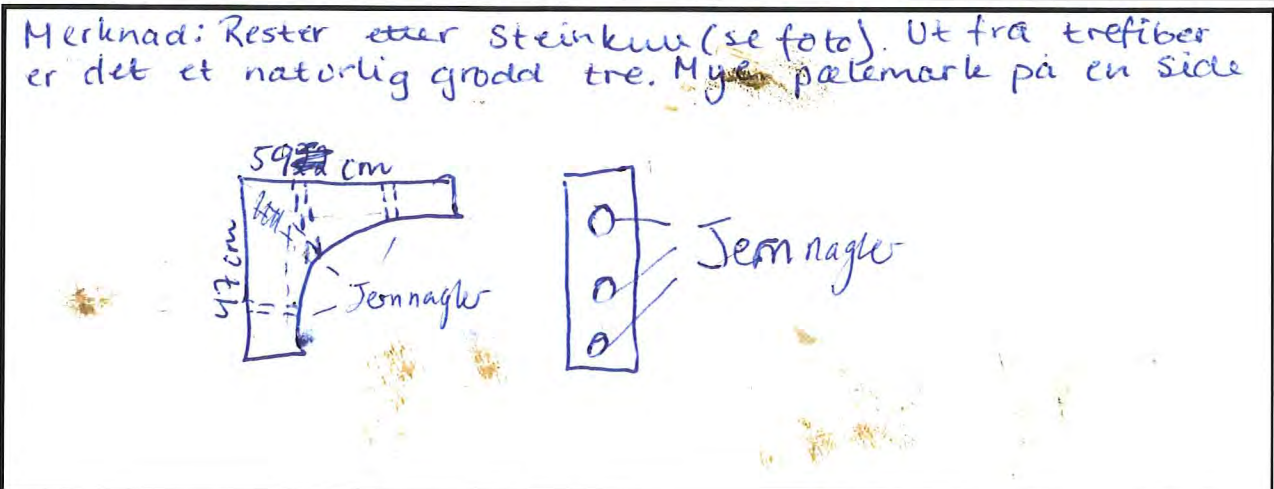 Merknad: Rester etter Steinkull (se foto). Ut fra trefiber
er det et naturlig grodd tre. Mye pælemark på en side
59 cm
47 cm
Jernnagler
Jernnagler